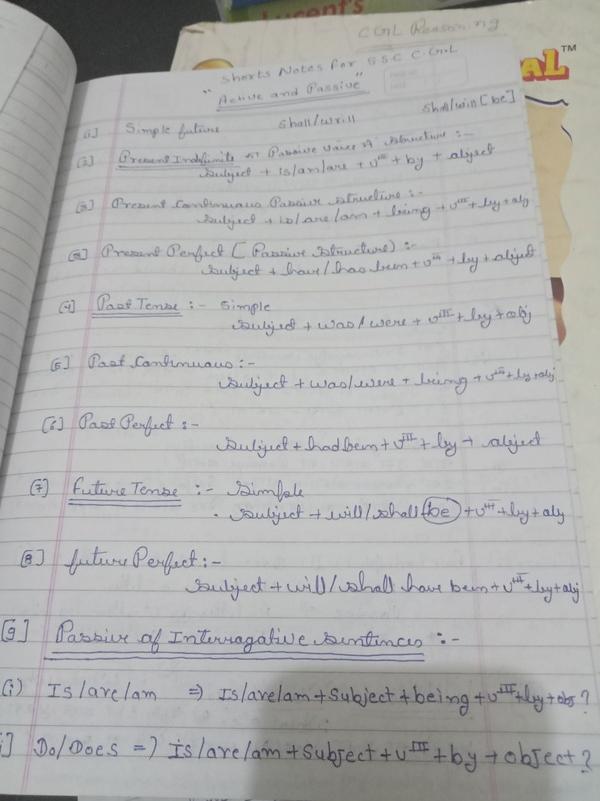 Lucent's
CGL Reasoning
AL™
Shorts Notes for SSC C.G.L
"Active and Passive"
1] Simple future shall/will shall/will [be]
(2) Present Indefinite Passive voice structure :-
Subject + is/am/are + vIII + by + object
Present Continuous Passive structure :-
Subject + is/are/am + being + vIII + by + obj
Present Perfect [Passive structure) :-
Subject + have/has been + vIII + by + object
(4) Past Tense :- Simple
Subject + was/were + vIII + by + obj
(5] Past Continuous :-
Subject + was/were + being + vIII + by + obj
(6] Past Perfect :-
Subject + had been + vIII + by + object
(7) Future Tense :- Simple
. Subject + will/shall (be) + vIII + by + obj
[8] future Perfect :-
Subject + will/shall have been + vIII + by + obj
[9] Passive of Interragative sentences :-
(i) Is/are/am => Is/are/am + Subject + being + vIII + by + obj?
i] Do/Does => Is/are/am + Subject + vIII + by + object?